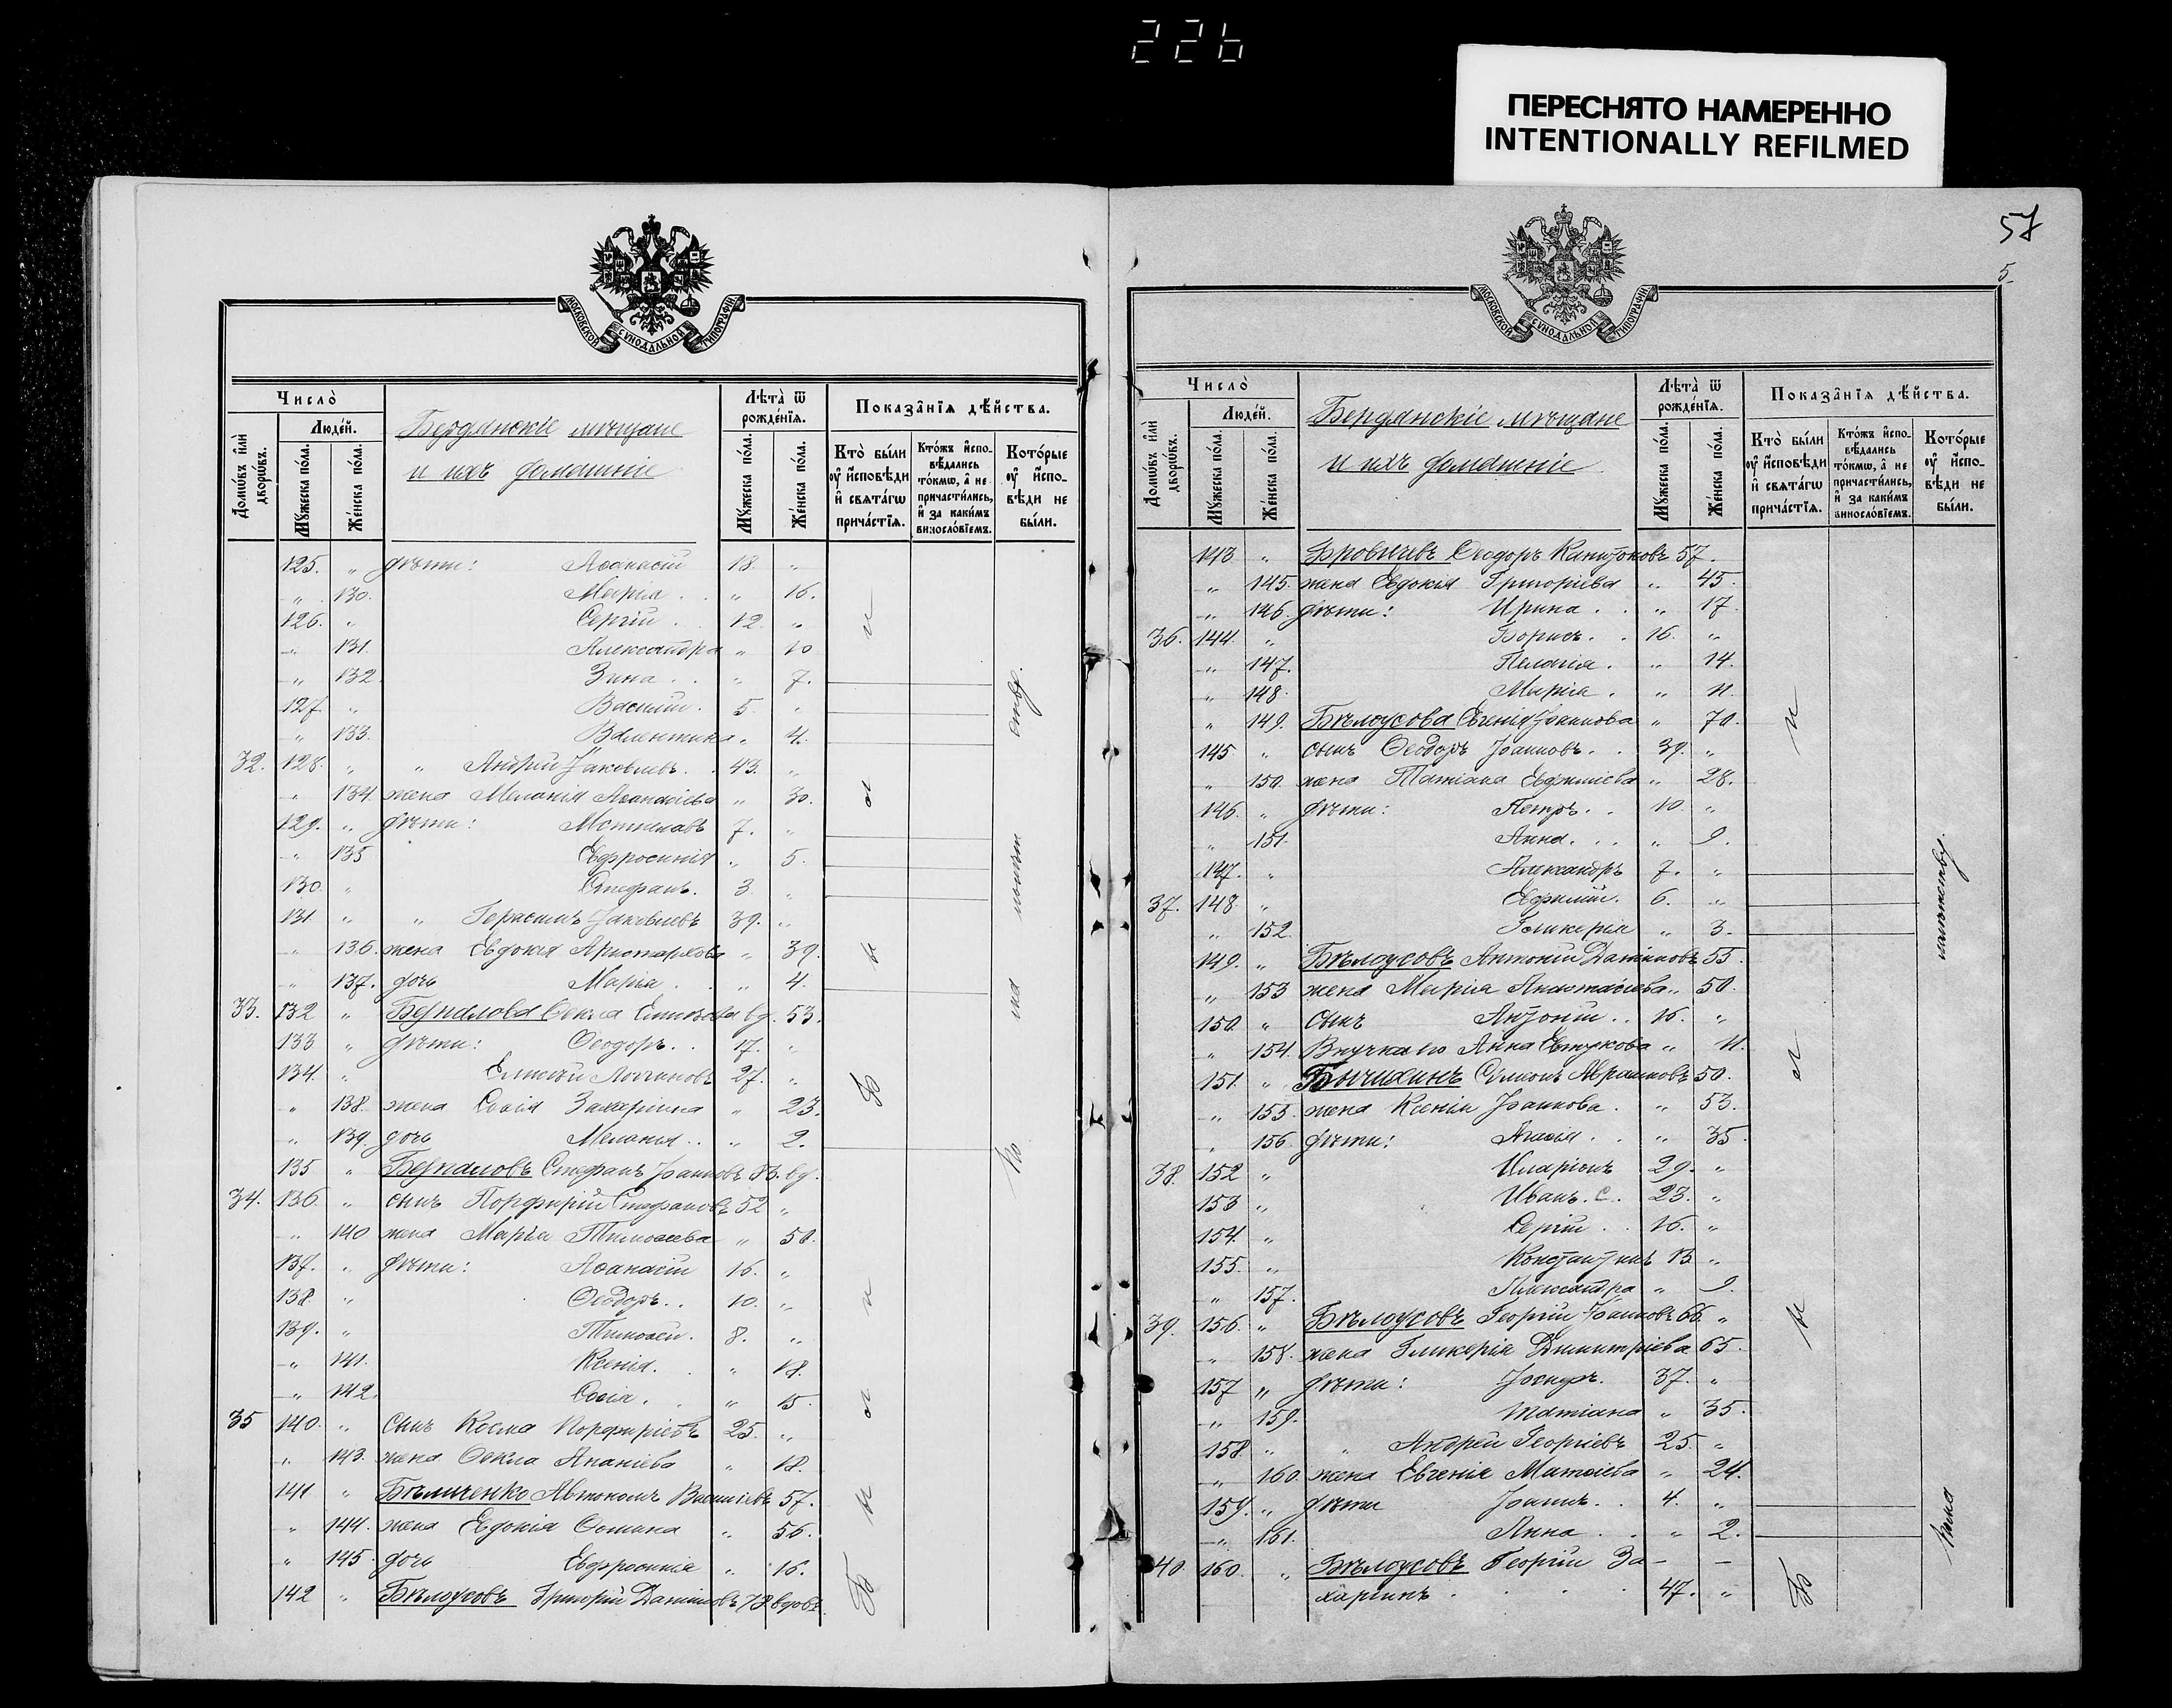 226
ПЕРЕСНЯТО НАМЕРЕННО
INTENTIONALLY REFILMED
МОСКОВСКОЙ СѴНОДАЛЬНОЙ ТИПОГРАФІИ
Число̀
Домѡ́въ и҆лѝ дворѡ́въ.
Люде́й.
Мꙋ́жеска по́ла.
Же́нска по́ла.
Бердянскіе мѣщане
и ихъ домашніе
Лѣта̀ ѿ рожде́нїя.
Мꙋ́жеска по́ла.
Же́нска по́ла.
Показа̑нїѧ дѣ́йства.
Кто̀ бы́ли ᲂу҆ и҆сповѣди и҆ свѧта́гѡ прича́стїѧ.
Кто́жъ и҆спо- вѣдались то́кмѡ, а҆ не причасти́лись, и҆ за каки́мъ винослові́емъ.
Кото́рые ᲂу҆ и҆спо- вѣди не бы́ли.
125. „ дѣти: Аѳанасій 18. „
„ 130. Марія . . „ 16.
126. „ Сергій . 12. „
„ 131. Александра „ 10
„ 132. Зина . . „ 7.
127 „ Василій. 5. „
„ 133. Валентина „ 4.
32. 128. „ „ Андрей Іаковлевъ. . 43. „
„ 134. жена Меланія Аѳанасіева „ 30.
129. „ дѣти: Мстиславъ 7. „
„ 135 Евфросинія „ 5.
130. „ Стефанъ. 3. „
131 „ „ Герасимъ Іаковлевъ 39. „
„ 136. жена Евдокія Аристархова „ 39.
„ 137. дочь Марія . . „ 4.
33. 132 „ Ѳекла вд. 53.
133 „ дѣти: Ѳеодоръ. . 17. „
134. „ Елисѣй Логгиновъ 27. „
„ 138. жена Софія Захаріина „ 23.
„ 139. дочь Меланія . . „ 2.
135 „ Стефанъ Іоанновъ 83. вд.
34. 136. „ сынъ Порфирій Стефановъ 52 „
„ 140 жена Марѳа Тимоѳеева „ 50.
137. „ дѣти: Аѳанасій 16. „
138. „ Ѳеодоръ. . 10. „
139. „ Тимоѳей. 8. „
„ 141. Ксенія. . „ 18.
„ 142. Софія. . „ 15.
35 140. „ сынъ Косма Порфиріевъ 25. „
„ 143. жена Ѳекла Ананіева „ 18.
141 „ Бѣличенко Автономъ Василіевъ 57.
„ 144. жена Евдокія Ѳомина „ 56.
„ 145. дочь Евфросинія „ 16.
142 „ Бѣлоусовъ Григорій Даніиловъ 78 вдовъ.
57
5.
МОСКОВСКОЙ СѴНОДАЛЬНОЙ ТИПОГРАФІИ
Число̀
Домѡ́въ и҆лѝ дворѡ́въ.
Люде́й.
Мꙋ́жеска по́ла.
Же́нска по́ла.
Бердянскіе мѣщане
и ихъ домашніе
Лѣта̀ ѿ рожде́нїя.
Мꙋ́жеска по́ла.
Же́нска по́ла.
Показа̑нїѧ дѣ́йства.
Кто̀ бы́ли ᲂу҆ и҆сповѣди и҆ свѧта́гѡ прича́стїѧ.
Кто́жъ и҆спо- вѣдались то́кмѡ, а҆ не причасти́лись, и҆ за каки́мъ винослові́емъ.
Кото́рые ᲂу҆ и҆спо- вѣди не бы́ли.
143. „ Ѳеодоръ Капитоновъ 57.
„ 145. жена Евдокія Григоріева „ 45.
„ 146. дѣти: Ирина . . „ 17.
36. 144. „ Борисъ. . 16. „
„ 147. Пелагія . „ 14.
„ 148. Марія . „ 11.
„ 149. Бѣлоусова Евгенія Іоаннова „ 70.
145 „ сынъ Ѳеодоръ Іоанновъ. . 39. „
„ 150. жена Татіана Евфиміева „ 28.
146. „ дѣти: Петръ. . 10. „
„ 151. Анна. . . „ 9.
147. „ Александръ 7. „
37. 148. „ Ефимій. 6. „
„ 152. Гликерія „ 3.
149. „ Бѣлоусовъ Антоній Даніиловъ 55.
„ 153 жена Марія Анастасіева „ 50.
150. „ сынъ Антоній . . 16. „
„ 154. Внучка его Анна „ 11.
151. „ Бычихинъ Симонъ Авраамовъ 50.
„ 155. жена Ксенія Іоаннова. „ 53.
„ 156. дѣти: Агафія . . „ 35.
38. 152 „ Иларіонъ 29. „
153 „ Иванъ. С. . 23. „
154. „ Сергій . . 16. „
155. „ Константинъ 13 „
„ 157. Александра „ 9.
39. 156. „ Бѣлоусовъ Георгій Іоанновъ 66. „
„ 158. жена Гликерія Димитріева 65.
157 „ дѣти: Іосифъ. 37. „
„ 159. Татіана „ 35.
158. „ „ Андрей Георгіевъ 25. „
„ 160. жена Евгенія Матѳіева „ 24.
159. „ дѣти Іоаннъ. . 4. „
„ 161. Анна . . „ 2.
40 160. „ Бѣлоусовъ Георгій За- —
харіинъ . . . . 47. „